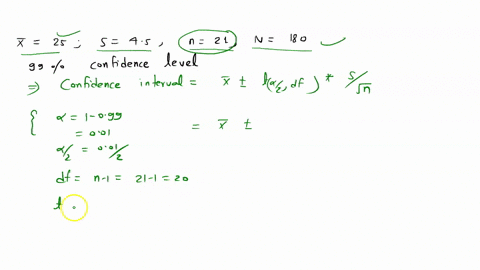 x̄ = 25 ; S = 4.5 , n = 21 , N = 180
99 % confidence level
⇒ Confidence interval = x̄ ± t(α/2, df) * S/√n
{ α = 1-0.99 = x̄ ±
= 0.01
α/2 = 0.01/2
df = n-1 = 21-1 = 20
t